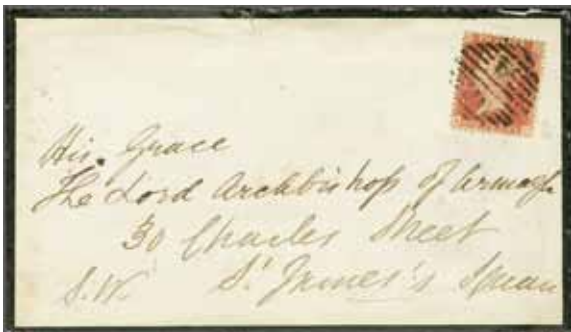 His Grace
The Lord Archbishop of Armagh
30 Charles Street
S.W. St James's Square